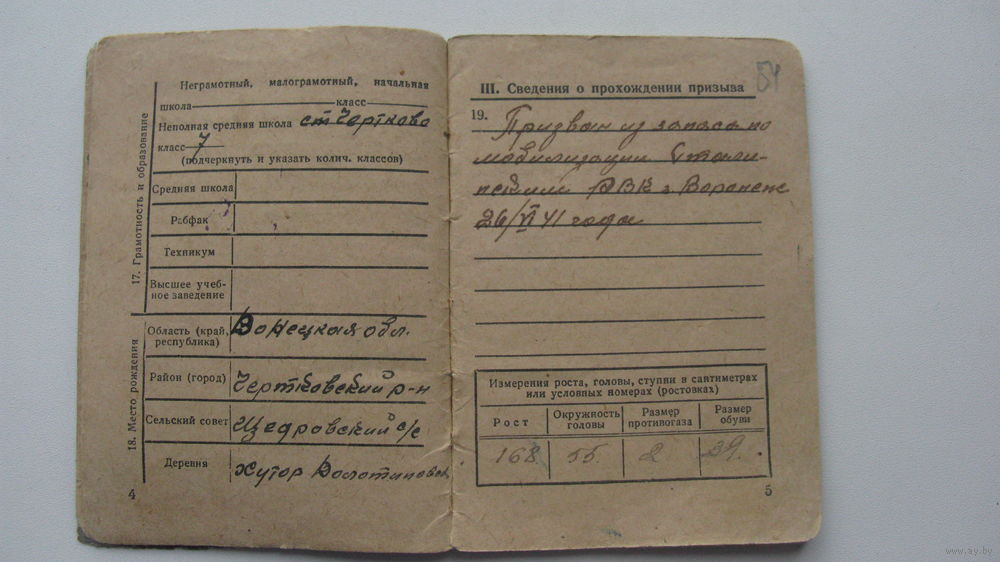 17. Грамотность и образование
Неграмотный, малограмотный, начальная
школа класс
Неполная средняя школа ст Чертково
класс 7
(подчеркнуть и указать колич. классов)
Средняя школа
Рабфак
Техникум
Высшее учеб-
ное заведение
18. Место рождения
Область (край, Донецкая обл.
республика)
Район (город) Чертковский р-н
Сельский совет Щедровский с/с
Деревня Хутор
4
54
III. Сведения о прохождении призыва
19. Призван из запаса по
мобилизации Стали-
нским РВК г Воронеж
26/VI 41 года
Измерения роста, головы, ступни в сантиметрах
или условных номерах (ростовках)
Рост Окружность головы Размер противогаза Размер обуви
168 55 2 39.
5
www.ay.by